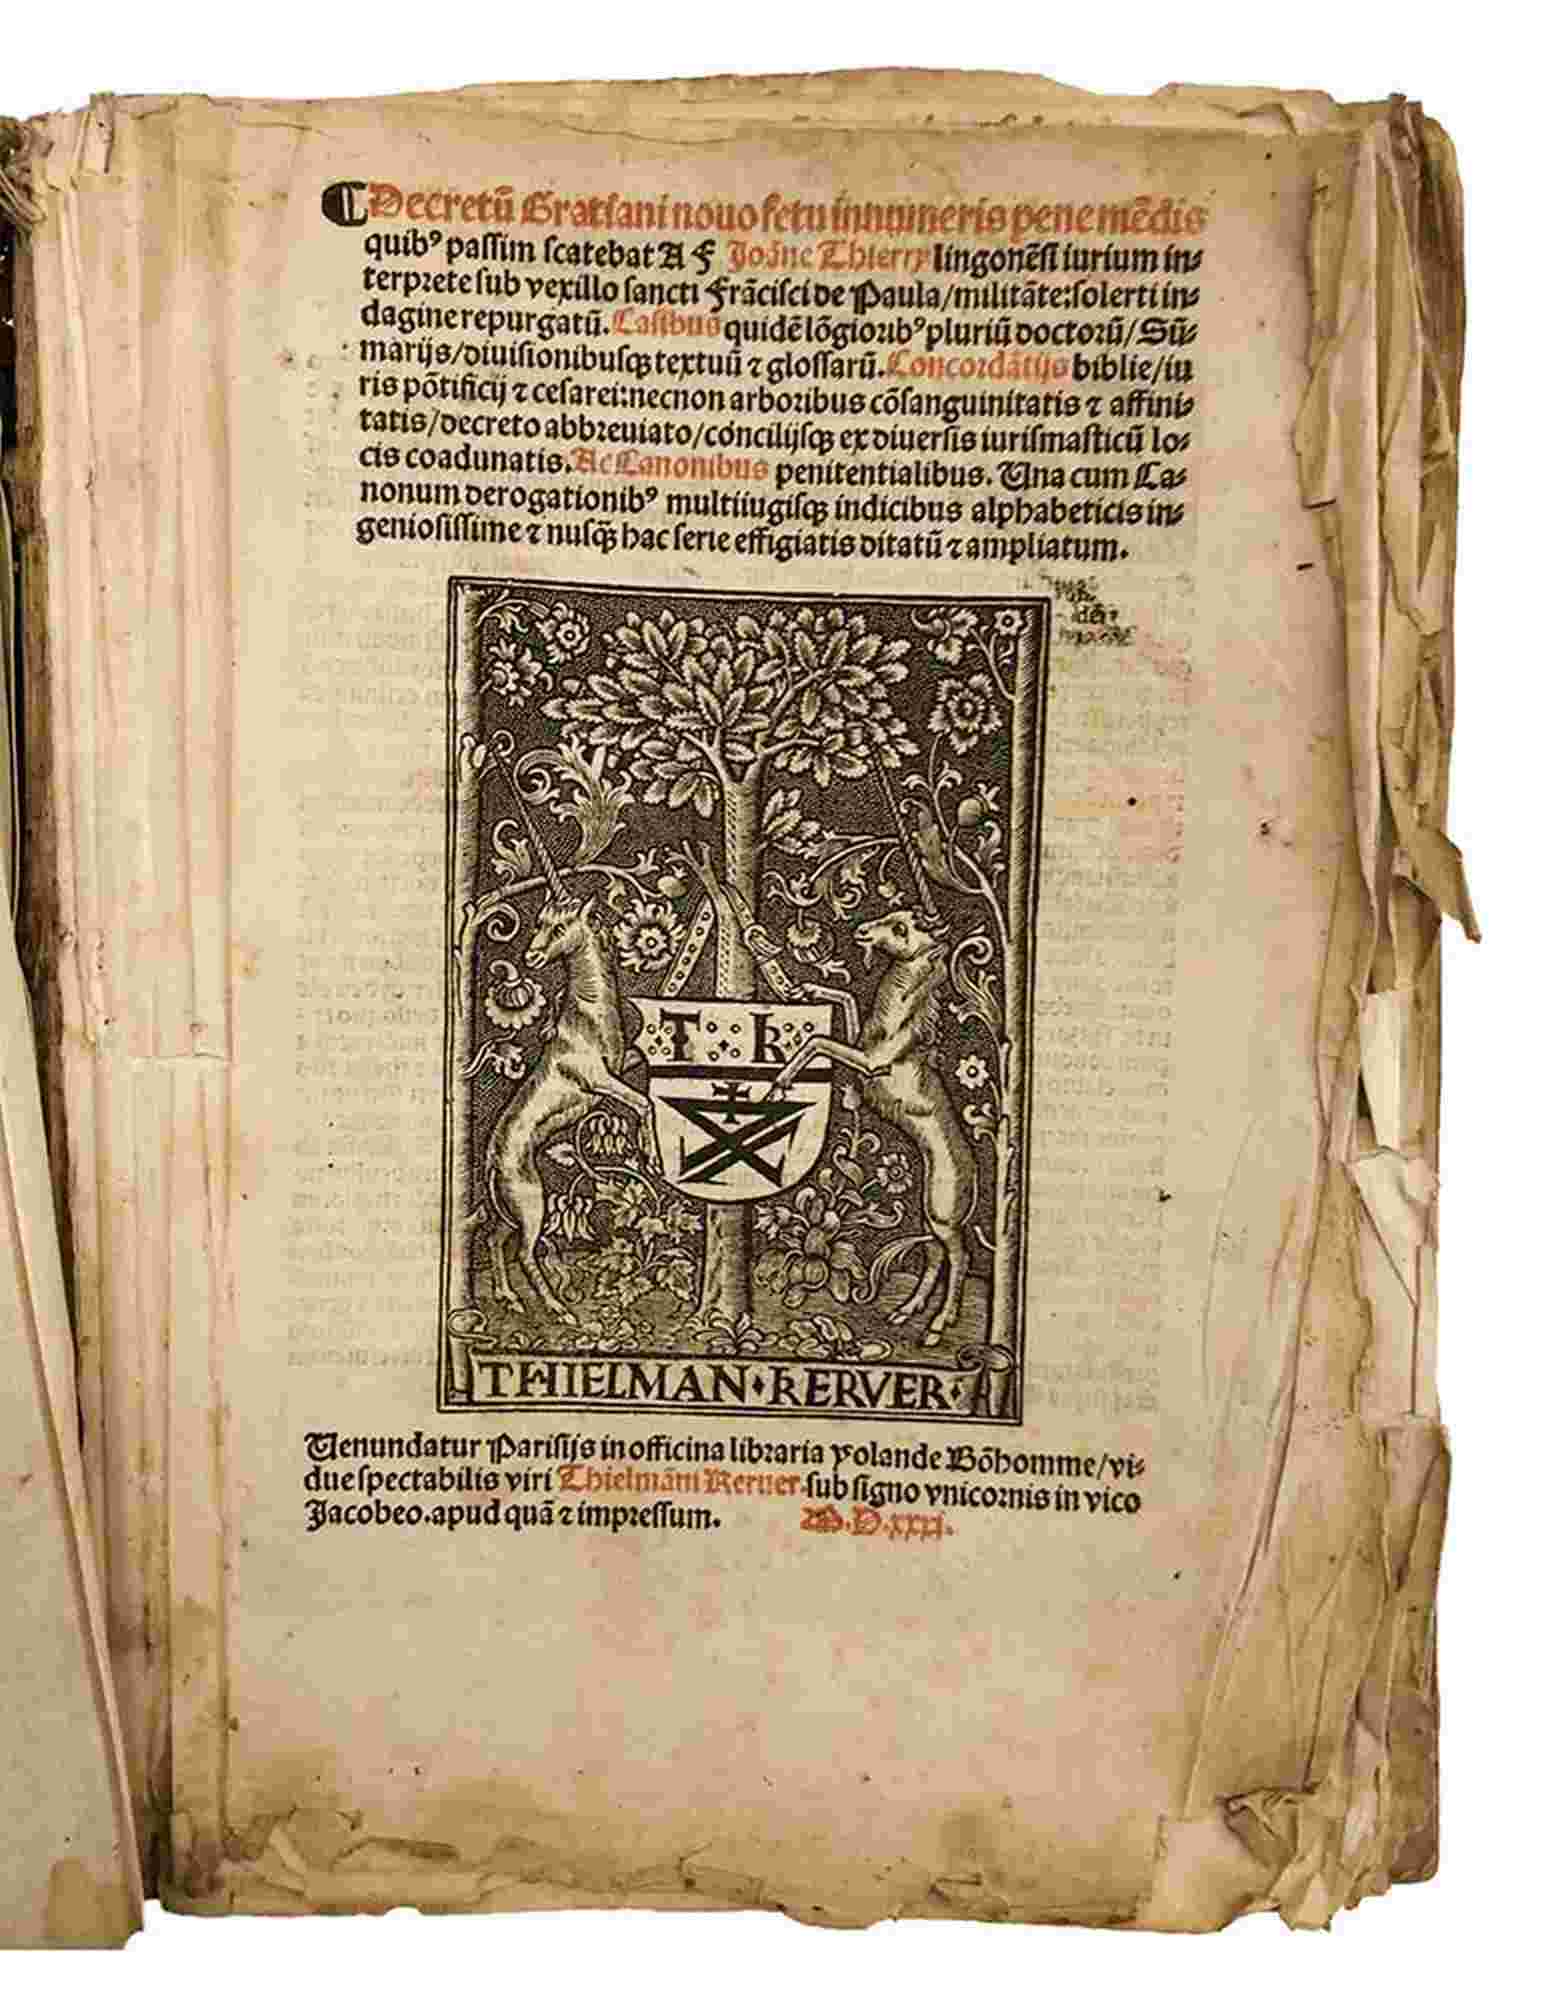 Decretū Gratiani nouo fetu innumeris pene mēdis
quibꝰ passim scatebat A F Joāne Thierry lingonēsi iurium in⸗
terprete sub vexillo sancti Frācisci de Paula/militāte:solerti in⸗
dagine repurgatū. Casibus quidē lōgioribꝰ pluriū doctorū/Sū⸗
marijs/diuisionibusqꝫ textuū ⁊ glossarū. Concordātijs biblie/iu
ris pōtificij ⁊ cesarei:necnon arboribus cōsanguinitatis ⁊ affini⸗
tatis/decreto abbreuiato/concilijsqꝫ ex diuersis iurismasticū lo⸗
cis coadunatis. Ac Canonibus penitentialibus. Una cum Ca⸗
nonum derogationibꝰ multiiugisqꝫ indicibus alphabeticis in⸗
geniosissime ⁊ nusq̄ȝ hac serie effigiatis ditatū ⁊ ampliatum.
T K
THIELMAN KERVER
Uenundatur Parisijs in officina libraria yolande Bōhomme/vi⸗
due spectabilis viri Thielmāni Keruer.sub signo vnicornis in vico
Jacobeo.apud quā ⁊ impressum. M.D.xxxi.